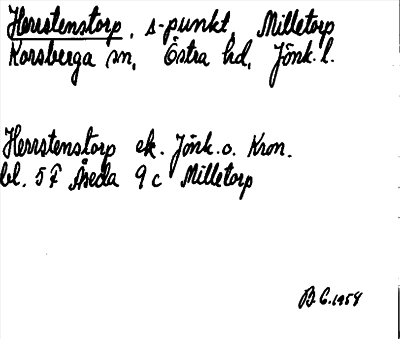 Herrstenstorp, s-punkt, Milletorp
Korsberga sn, Östra hd, Jönk. l.
Herrstenstorp ek. Jönk. o. Kron.
bl. 5 F Åseda 9 c Milletorp
B.G. 1954